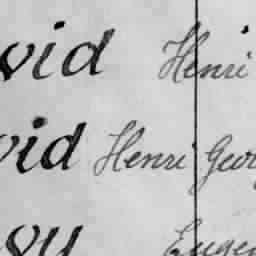 vid Henri
vid Henri Geor
vy Eugen